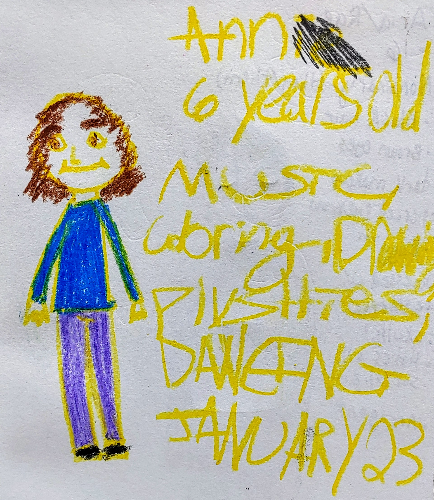 Ann
6 years old
Music,
Coloring, Drawing
PlUSHIES,
DANCING
JANUARY 23